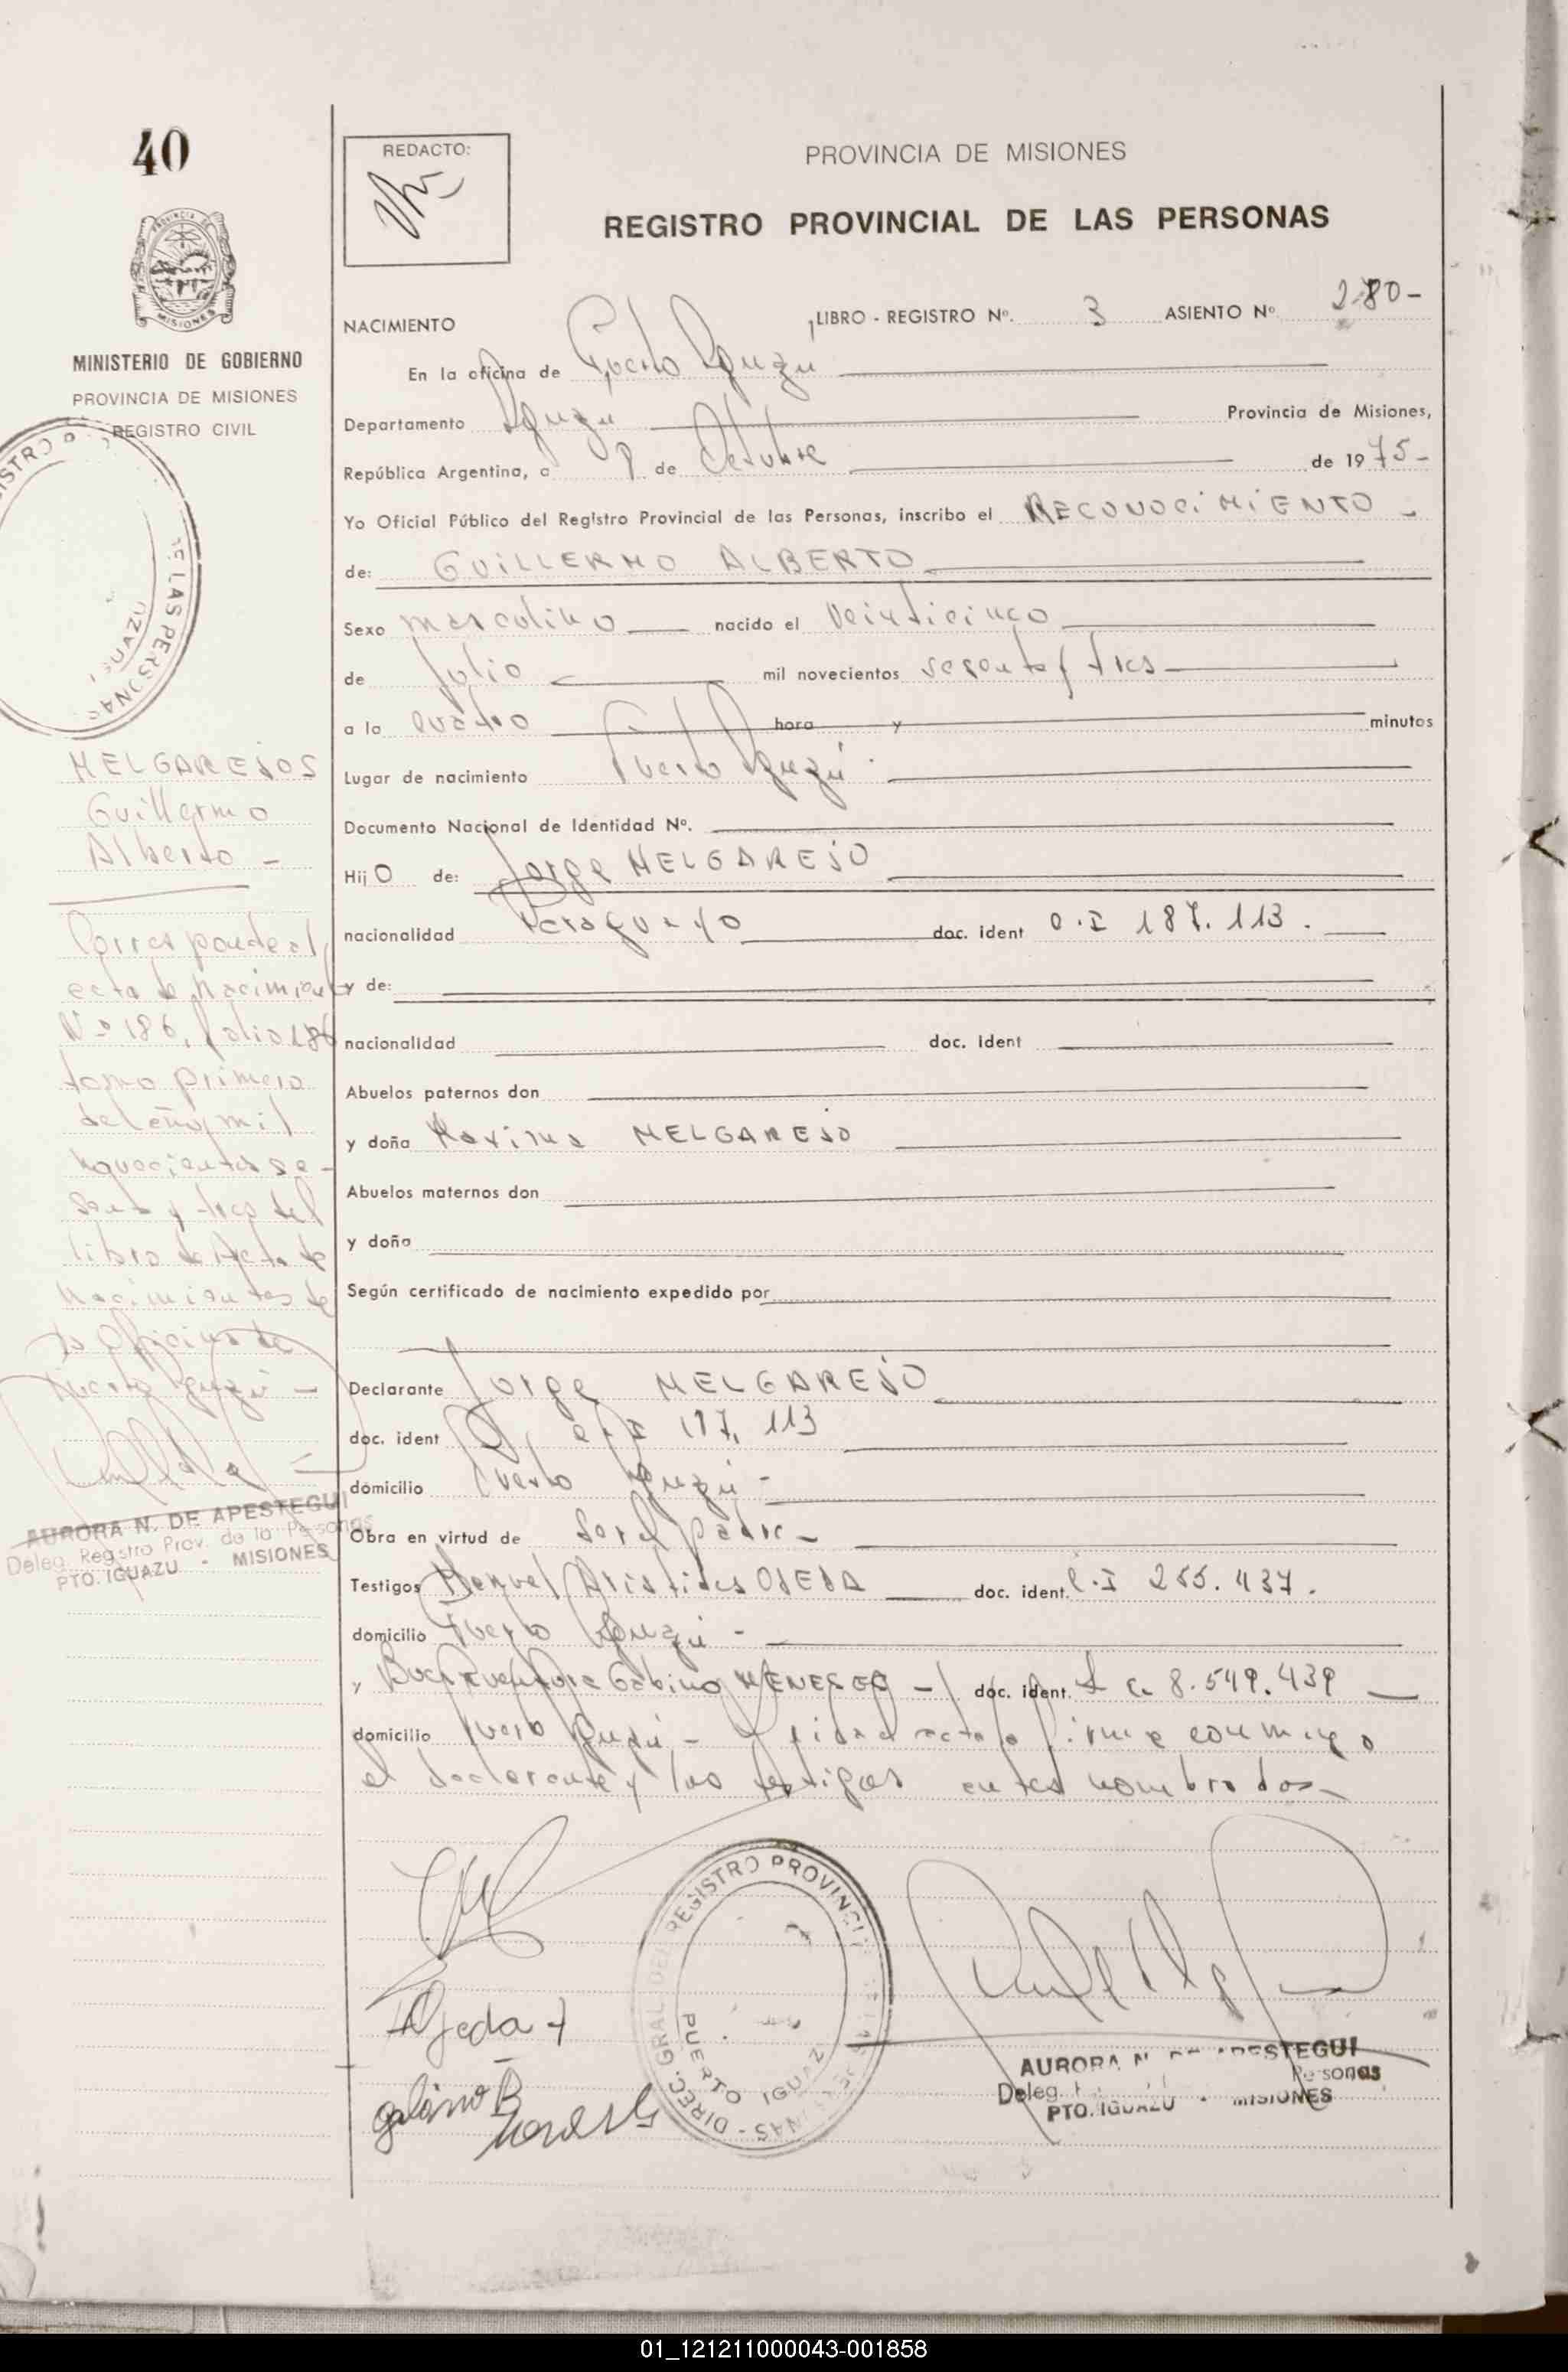 40
PROVINCIA DE
MISIONES
MINISTERIO DE GOBIERNO
PROVINCIA DE MISIONES
REGISTRO CIVIL
MELGAREJOS
Guillermo
Alberto -
Corresponde al
acta de nacimiento
Nº 186, folio 186
tomo primero
del año mil
novecientos se-
senta y tres del
libro de Acta de
Nacimientos de
la Oficina de
Puerto Iguazú -
AURORA N. DE APESTEGUI
Deleg. Registro Prov. de la Personas
PTO. IGUAZU - MISIONES
REDACTO:
PROVINCIA DE MISIONES
REGISTRO PROVINCIAL DE LAS PERSONAS
NACIMIENTO LIBRO - REGISTRO Nº. 3 ASIENTO Nº 280-
En la oficina de Puerto Iguazú
Departamento Iguazú Provincia de Misiones,
República Argentina, a 9 de Octubre de 1975-
Yo Oficial Público del Registro Provincial de las Personas, inscribo el RECONOCIMIENTO -
de: GUILLERMO ALBERTO
Sexo masculino nacido el veinticinco
de Julio mil novecientos sesenta y tres
a la cuatro hora y minutos
Lugar de nacimiento Puerto Iguazú
Documento Nacional de Identidad Nº.
HijO de: Jorge MELGAREJO
nacionalidad Paraguayo doc. ident C.I 187.113.
y de:
nacionalidad doc. ident
Abuelos paternos don
y doña Maxima MELGAREJO
Abuelos maternos don
y doña
Según certificado de nacimiento expedido por
Declarante Jorge MELGAREJO
doc. ident C.I 187.113
domicilio Puerto Iguazú -
Obra en virtud de ser el padre -
Testigos Manuel Aristides OJEDA doc. ident. C.I 255.437.
domicilio Puerto Iguazú -
y Buenaventura Gabino MENESES - doc. ident. L E. 8.549.439
domicilio Puerto Iguazú - leída el acta la firma conmigo
el declarante y los testigos antes nombrados
DIREC. GRAL DEL REGISTRO PROVINCIAL DE LAS PERSONAS -
PUERTO IGUAZU
Ojeda
gabino B
AURORA N. DE APESTEGUI
Deleg. Personas
PTO. IGUAZU - MISIONES
01_121211000043-001858